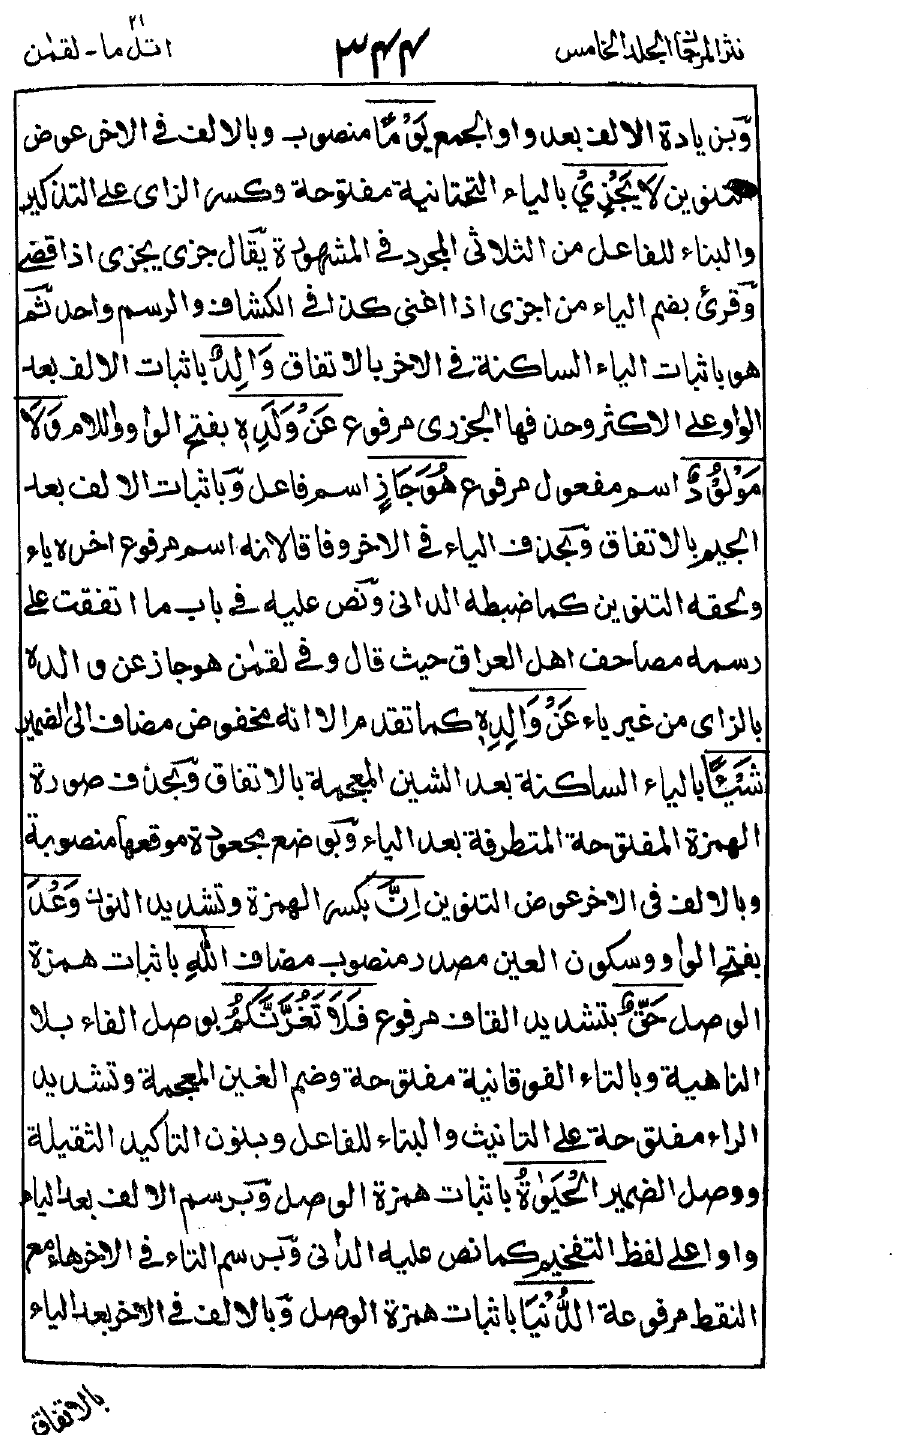 نثر المرجان المجلد الخامس
٣٤٤
اتل ما - لقمٰن
٢١
وّبزيادة الالف بعد واو الجمع يَوْمًا منصوب وبالالف في الاخر عوض
التنوين لَا يَجْزِيْ بالياء التحتانية مفتوحة وكسر الزاى على التذكير
والبناء للفاعل من الثلاثى المجرد في المشهورة يقال جزى يجزى اذا قضے
وّقرئ بضم الياء من اجزى اذا اغنى كذا في الكشاف والرسم واحد ثم
هو باثبات الياء الساكنة في الاخر بالاتفاق وَالِدٌ باثبات الالف بعد
الواو على الاكثر وحذفها الجزرى مرفوع عَنْ وَلَدِهٖ بفتح الواو واللام وَلَا
مَوْلُوْدٌ اسم مفعول مرفوع هُوَ جَازٍ اسم فاعل وّباثبات الالف بعد
الجيم بالاتفاق وّبحذف الياء في الاخر وفاقا لانه اسم مرفوع اخره ياء
ولحقه التنوين كما ضبطه الدانى ونّص عليه في باب ما اتفقت على
رسمه مصاحف اهل العراق حيث قال وفي لقمٰن هو جاز عن والده
بالزاى من غير ياء عَنْ وَالِدِهٖ كما تقدم الا انه مخفوض مضاف الى الضمير
شَيْئًا بالياء الساكنة بعد الشين المعجمة بالاتفاق وّبحذف صورة
الهمزة المفتوحة المتطرفة بعد الياء وّبوضع مجعودة موقعها منصوبة
وبالالف في الاخر عوض التنوين اِنَّ بكسر الهمزة وتشديد النون وَعْدَ
بفتح الواو وسكون العين مصدر منصوب مضاف اللّٰهِ باثبات همزة
الوصل حَقٌّ بتشديد القاف مرفوع فَلَا تَغُرَّنَّكُمُ بوصل الفاء بلا
الناهية وبالتاء الفوقانية مفتوحة وضم الغين المعجمة وتشديد
الراء مفتوحة على التانيث والبناء للفاعل وبنون التاكيد الثقيلة
ووصل الضمير الْحَيٰوةُ باثبات همزة الوصل وّبرسم الالف بعد الياء
واوا على لفظ التفخيم كما نص عليه الدانى وّبرسم التاء في الاخر هاء مع
النقط مرفوعة الدُّنْيَا باثبات همزة الوصل وّبالالف في الاخر بعد الياء
بالاتفاق